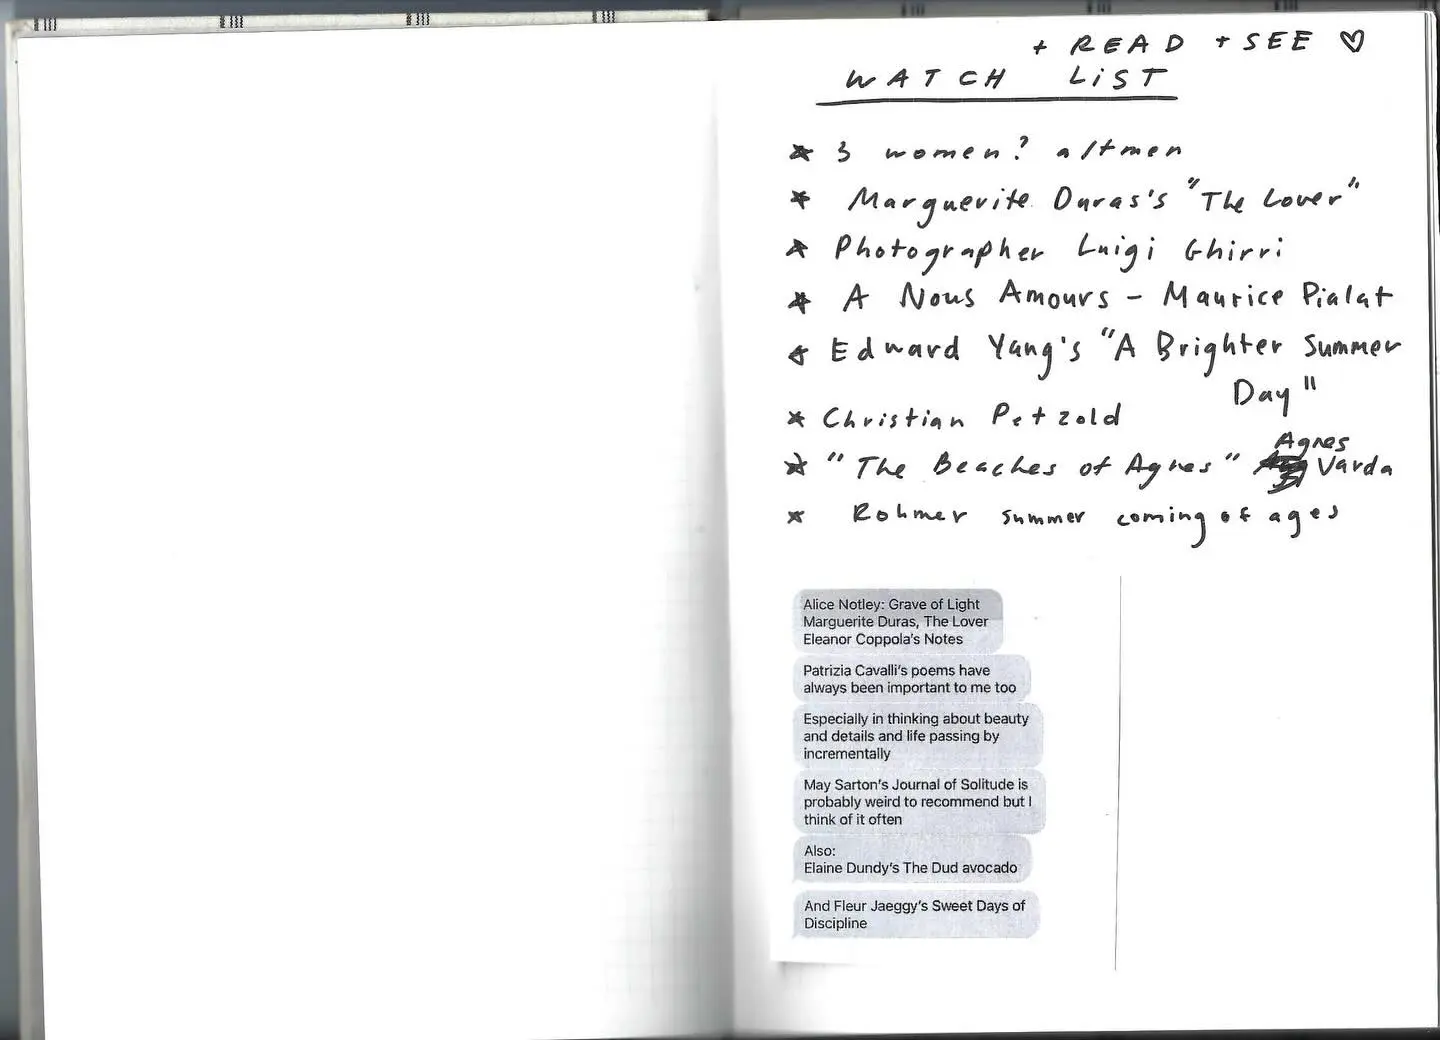 + READ + SEE ♡
WATCH LiST
* 3 women? altmen
* Marguerite Duras's "The Lover"
* Photographer Luigi Ghirri
* A Nous Amours - Maurice Pialat
* Edward Yang's "A Brighter Summer
Day"
* Christian Petzold
* "The Beaches of Agnes" Agnes Varda
* Rohmer summer coming of ages
Alice Notley: Grave of Light
Marguerite Duras, The Lover
Eleanor Coppola's Notes
Patrizia Cavalli's poems have
always been important to me too
Especially in thinking about beauty
and details and life passing by
incrementally
May Sarton's Journal of Solitude is
probably weird to recommend but I
think of it often
Also:
Elaine Dundy's The Dud avocado
And Fleur Jaeggy's Sweet Days of
Discipline